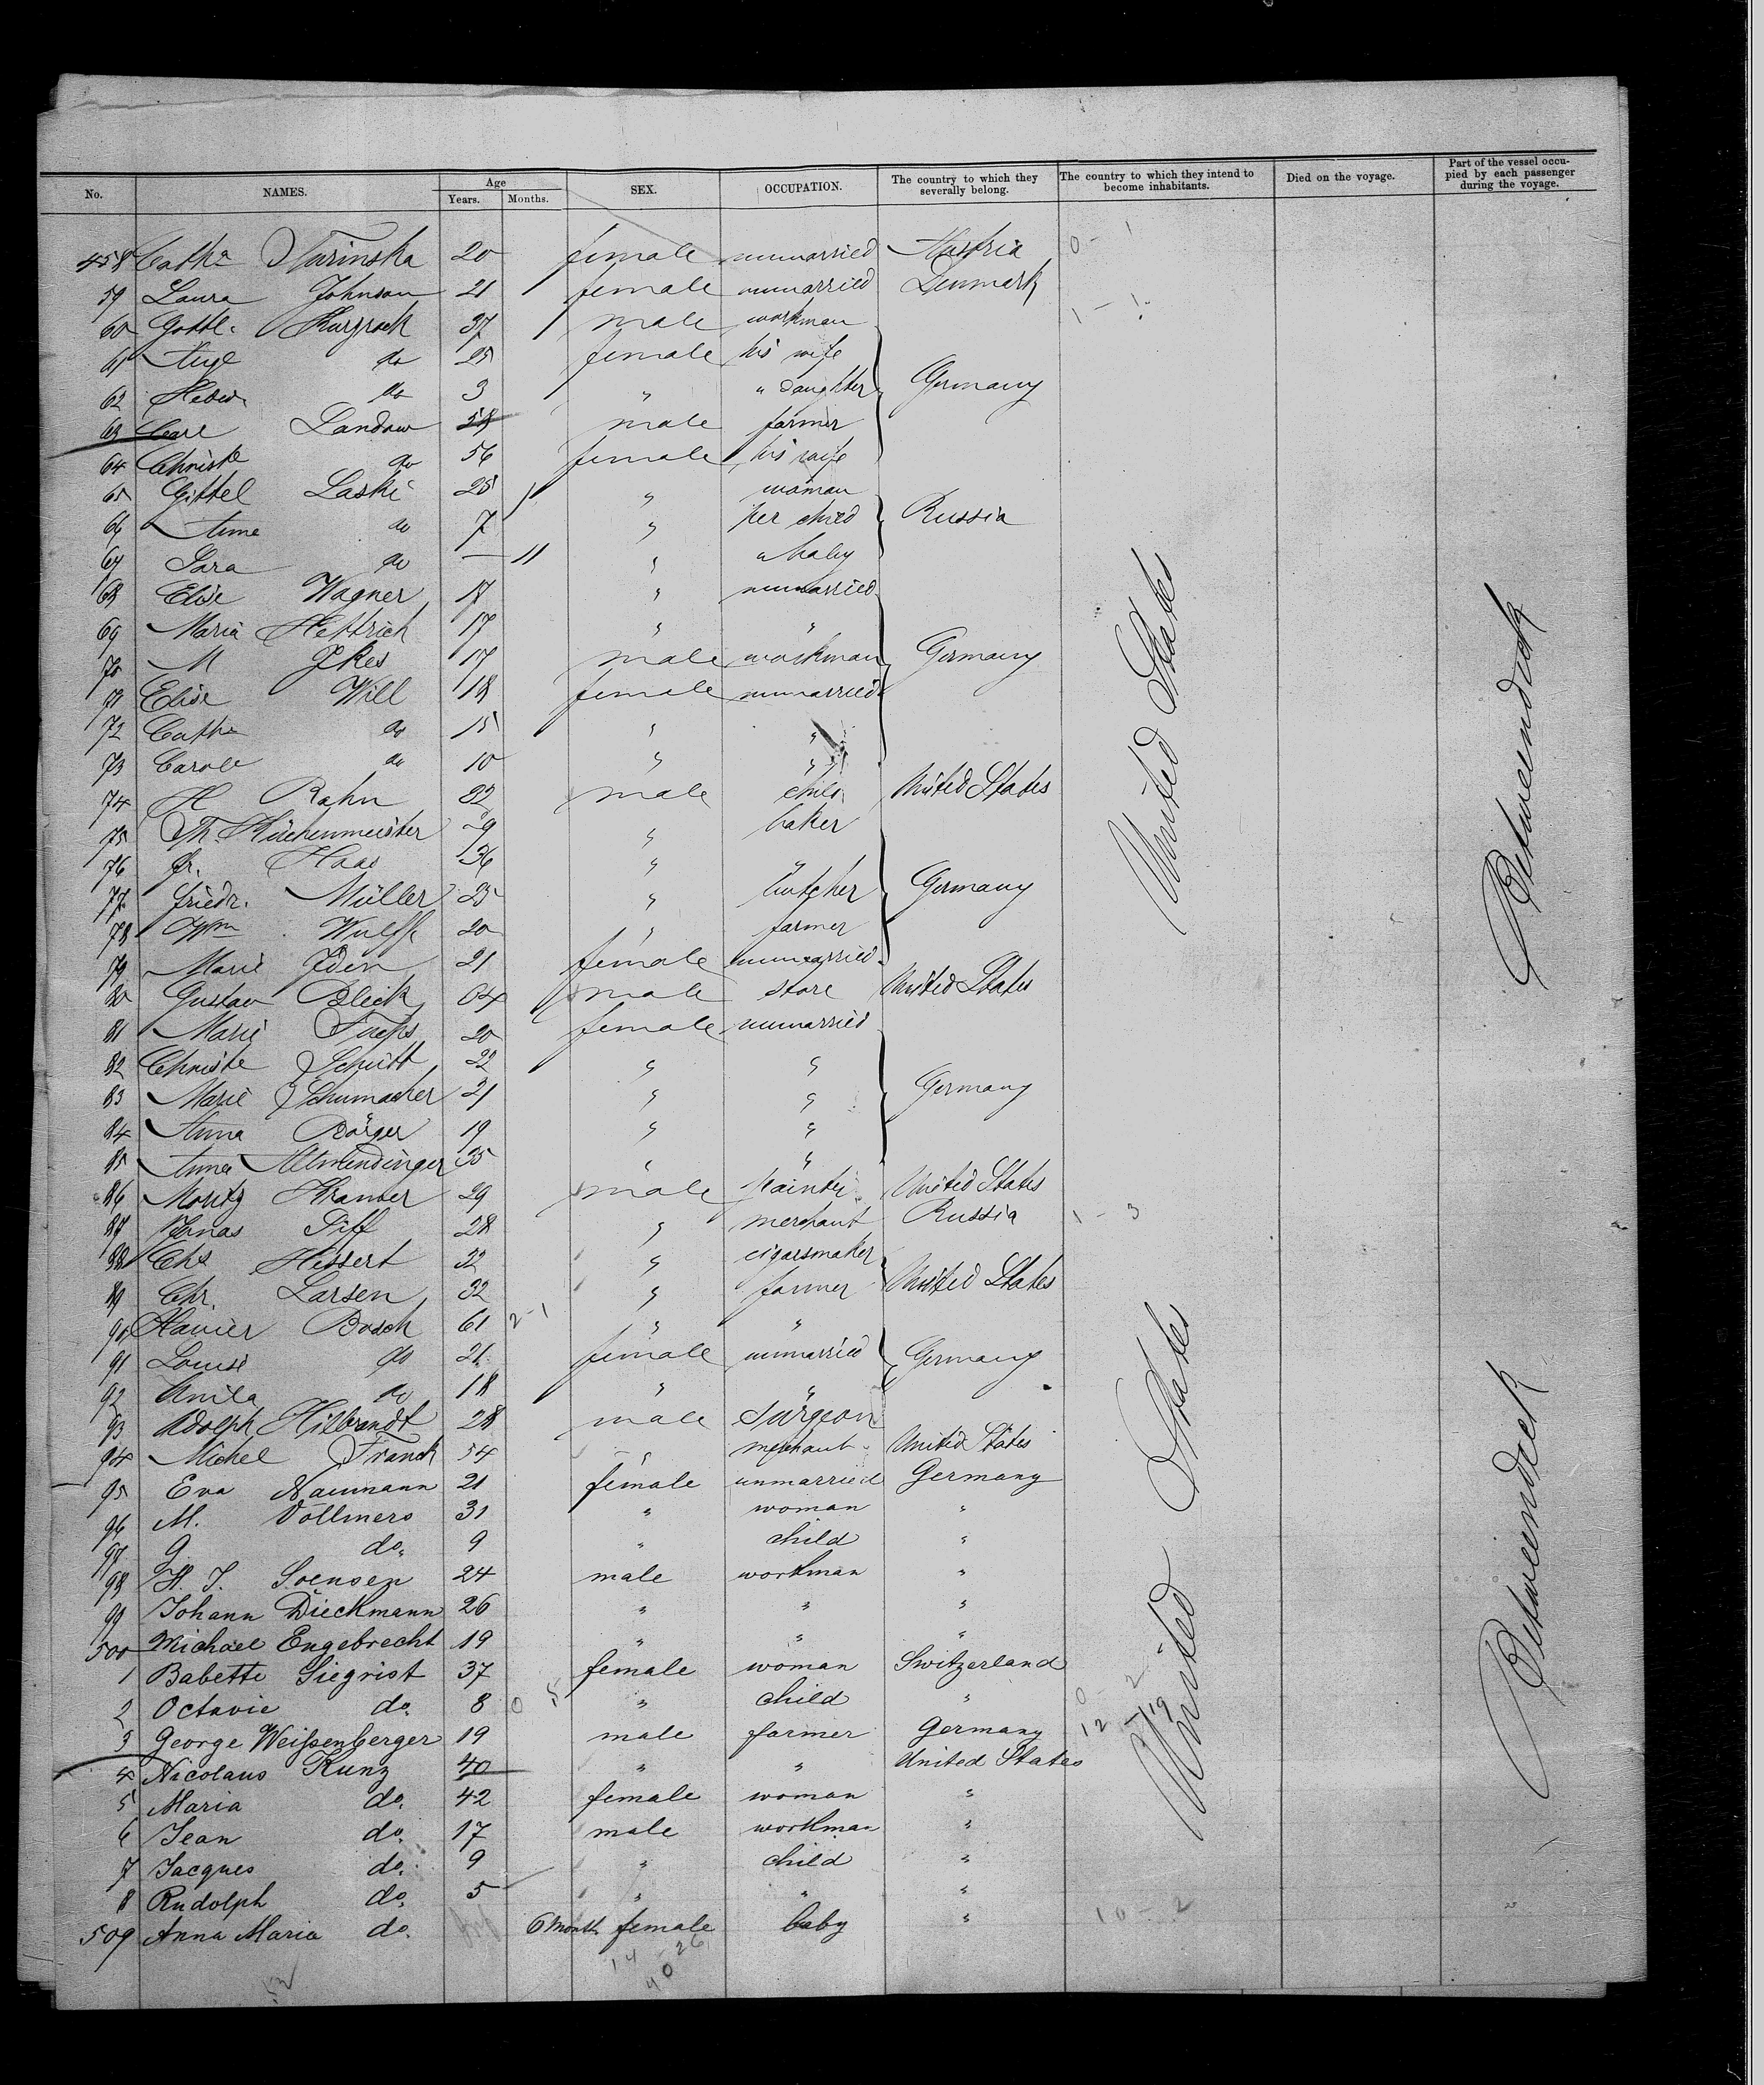 No. NAMES. Age Years. Months. SEX. OCCUPATION. The country to which they severally belong. The country to which they intend to become inhabitants. Died on the voyage. Part of the vessel occupied by each passenger during the voyage.
458 Catha 20 female unmarried Austria 0 - 1
59 Laura Johnson 21 female unmarried Denmark 1 - 1
60 Gottl. 37 male workman
61 Aug do 25 female his wife
62 Hedw do 3 " " daughter Germany
63 Carl Landow 58 male farmer
64 Christe do 56 female his wife
65 Gittel Laski 25 " woman
66 Anna do 7 " her child Russia
67 Sara do — 11 " " baby
68 Elise Wagner 17 " unmarried
69 Maria Hettrich 17 " "
70 M Jkes 17 male workman Germany
71 Elise Will 18 female unmarried
72 Cathe do 15 " "
73 Carole do 10 " "
74 H Rahn 32 male child United States
75 Th. Küchenmeister 29 " baker
76 Fr. Haas 36 " "
77 Friedr. Müller 25 " butcher Germany
78 Wm Wulff 20 " farmer
79 Marie Iden 21 female unmarried
80 Gustav Blick 64 male store United States
81 Marie 20 female unmarried
82 Christe Schütt 22 " "
83 Marie Schumacher 21 " " Germany
84 Anna Börger 19 " "
85 Anna Allmendinger 35 " "
86 Moritz Kramer 29 male painter United States
87 Jonas Piff 28 " merchant Russia 1 - 3
88 Chs Hessert 32 " cigarsmaker
89 Chr. Larsen 32 " farmer United States
90 Xavier Bosch 61 2-1 " "
91 Louise do 21 female unmarried Germany
92 Anila do 18 " "
93 Adolph Hilbrandt 28 male Surgeon
94 Michel Franck 54 " merchant United States
95 Eva Naumann 21 female unmarried Germany
96 M. Vollmers 31 " woman "
97 G do. 9 " child "
98 H. J. Soensen 24 male workman "
99 Johann Dieckmann 26 " " "
500 Michael Engebrecht 19 " " "
1 Babette Siegrist 37 female woman Switzerland
2 Octavie do. 8 0 5 " child " 0 - 2
3 George Weißenberger 19 male farmer Germany 12 - 19
4 Nicolaus Kunz 40 " " United States
5 Maria do. 42 female woman "
6 Jean do. 17 male workman "
7 Jacques do. 9 " child "
8 Rudolph do. 5 " " "
509 Anna Maria do. 6 Month female baby " 10 - 2
14 - 26
40
United States
United States
Betweendeck
Betweendeck